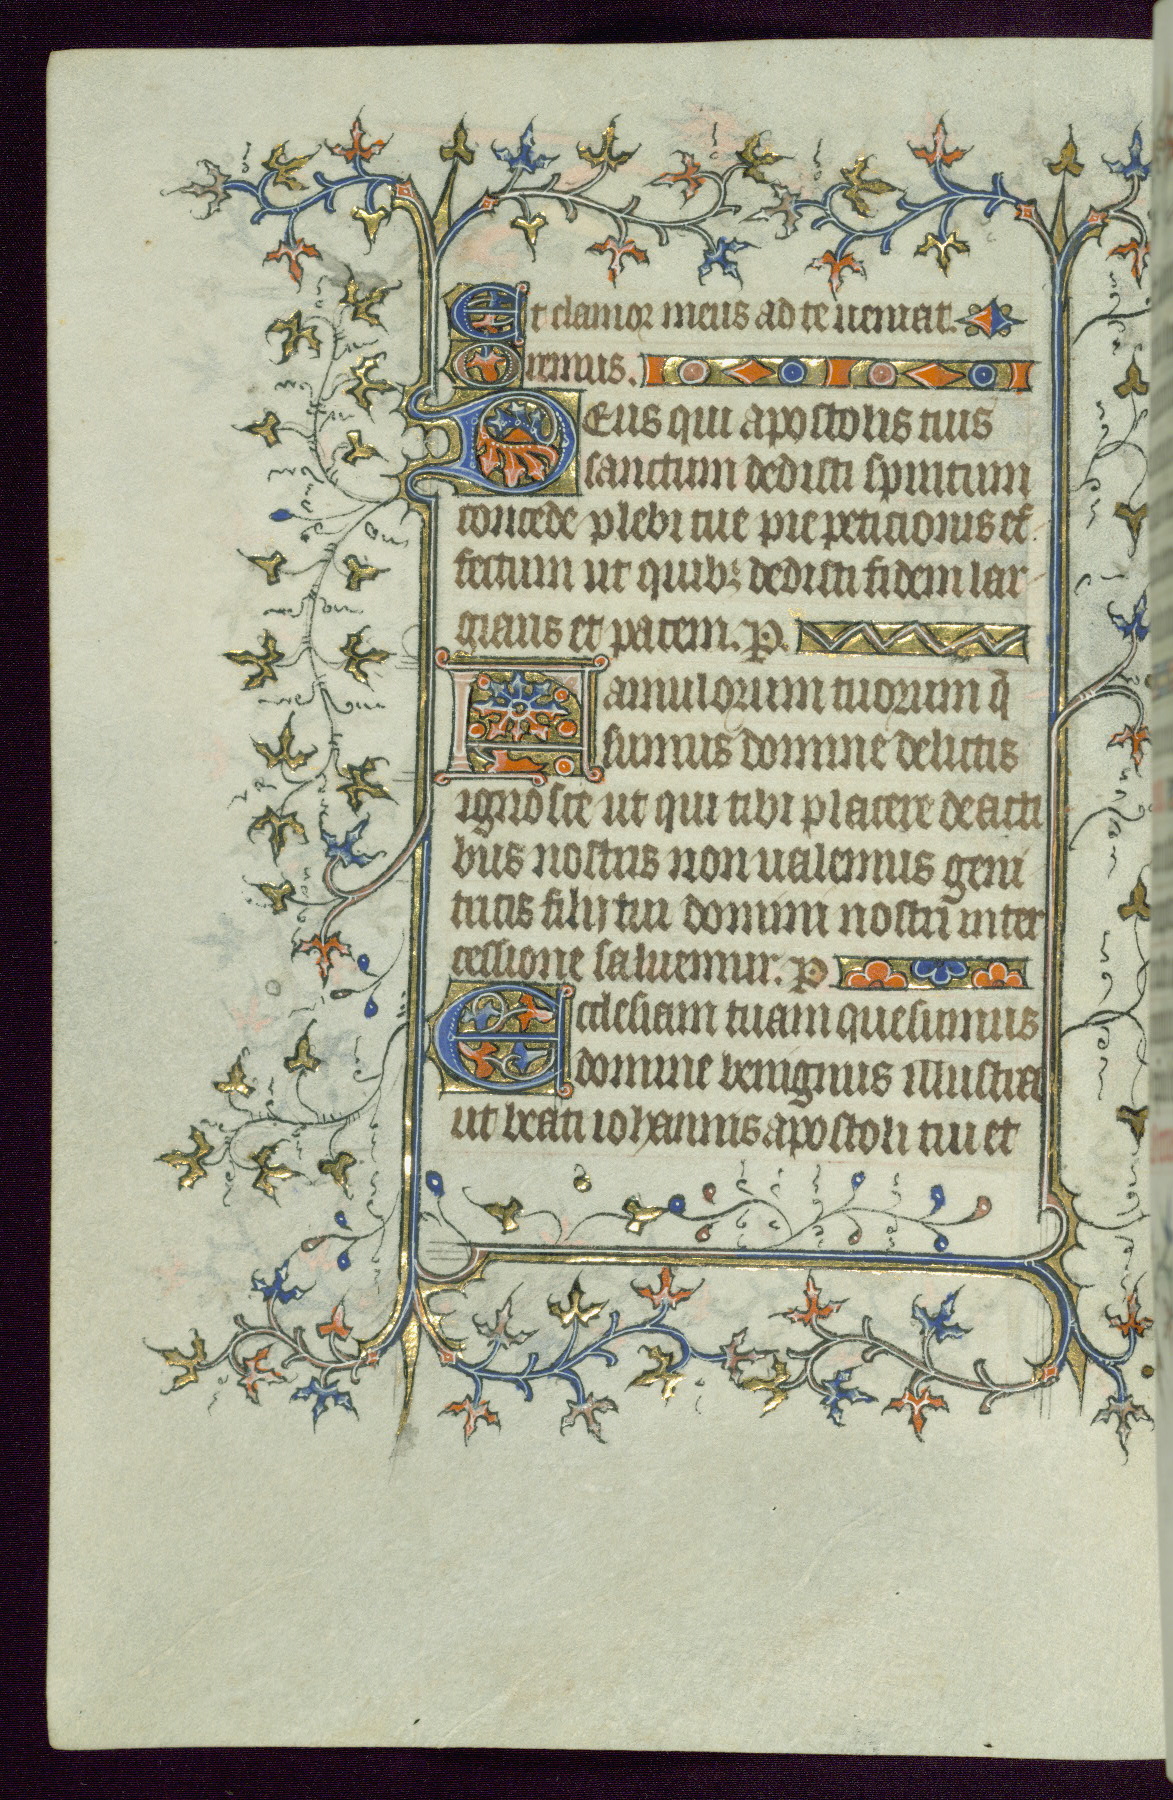 Et clamor meus ad te ueniat.
Oremus.
Deus qui apostolis tuis
sanctum dedisti spiritum
concede plebi tue pie peticionis ef
fectum ut quibꝫ dedisti fidem lar
giaris et pacem. P.
Famulorum tuorum q̄
sumus domine delictis
ignosce ut qui tibi placere de acti
bus nostris non ualemus geni
tricis filij tui domini nostri inter
cessione saluemur. P
Ecclesiam tuam quesumus
domine benignus illustra
ut beati iohannis apostoli tui et